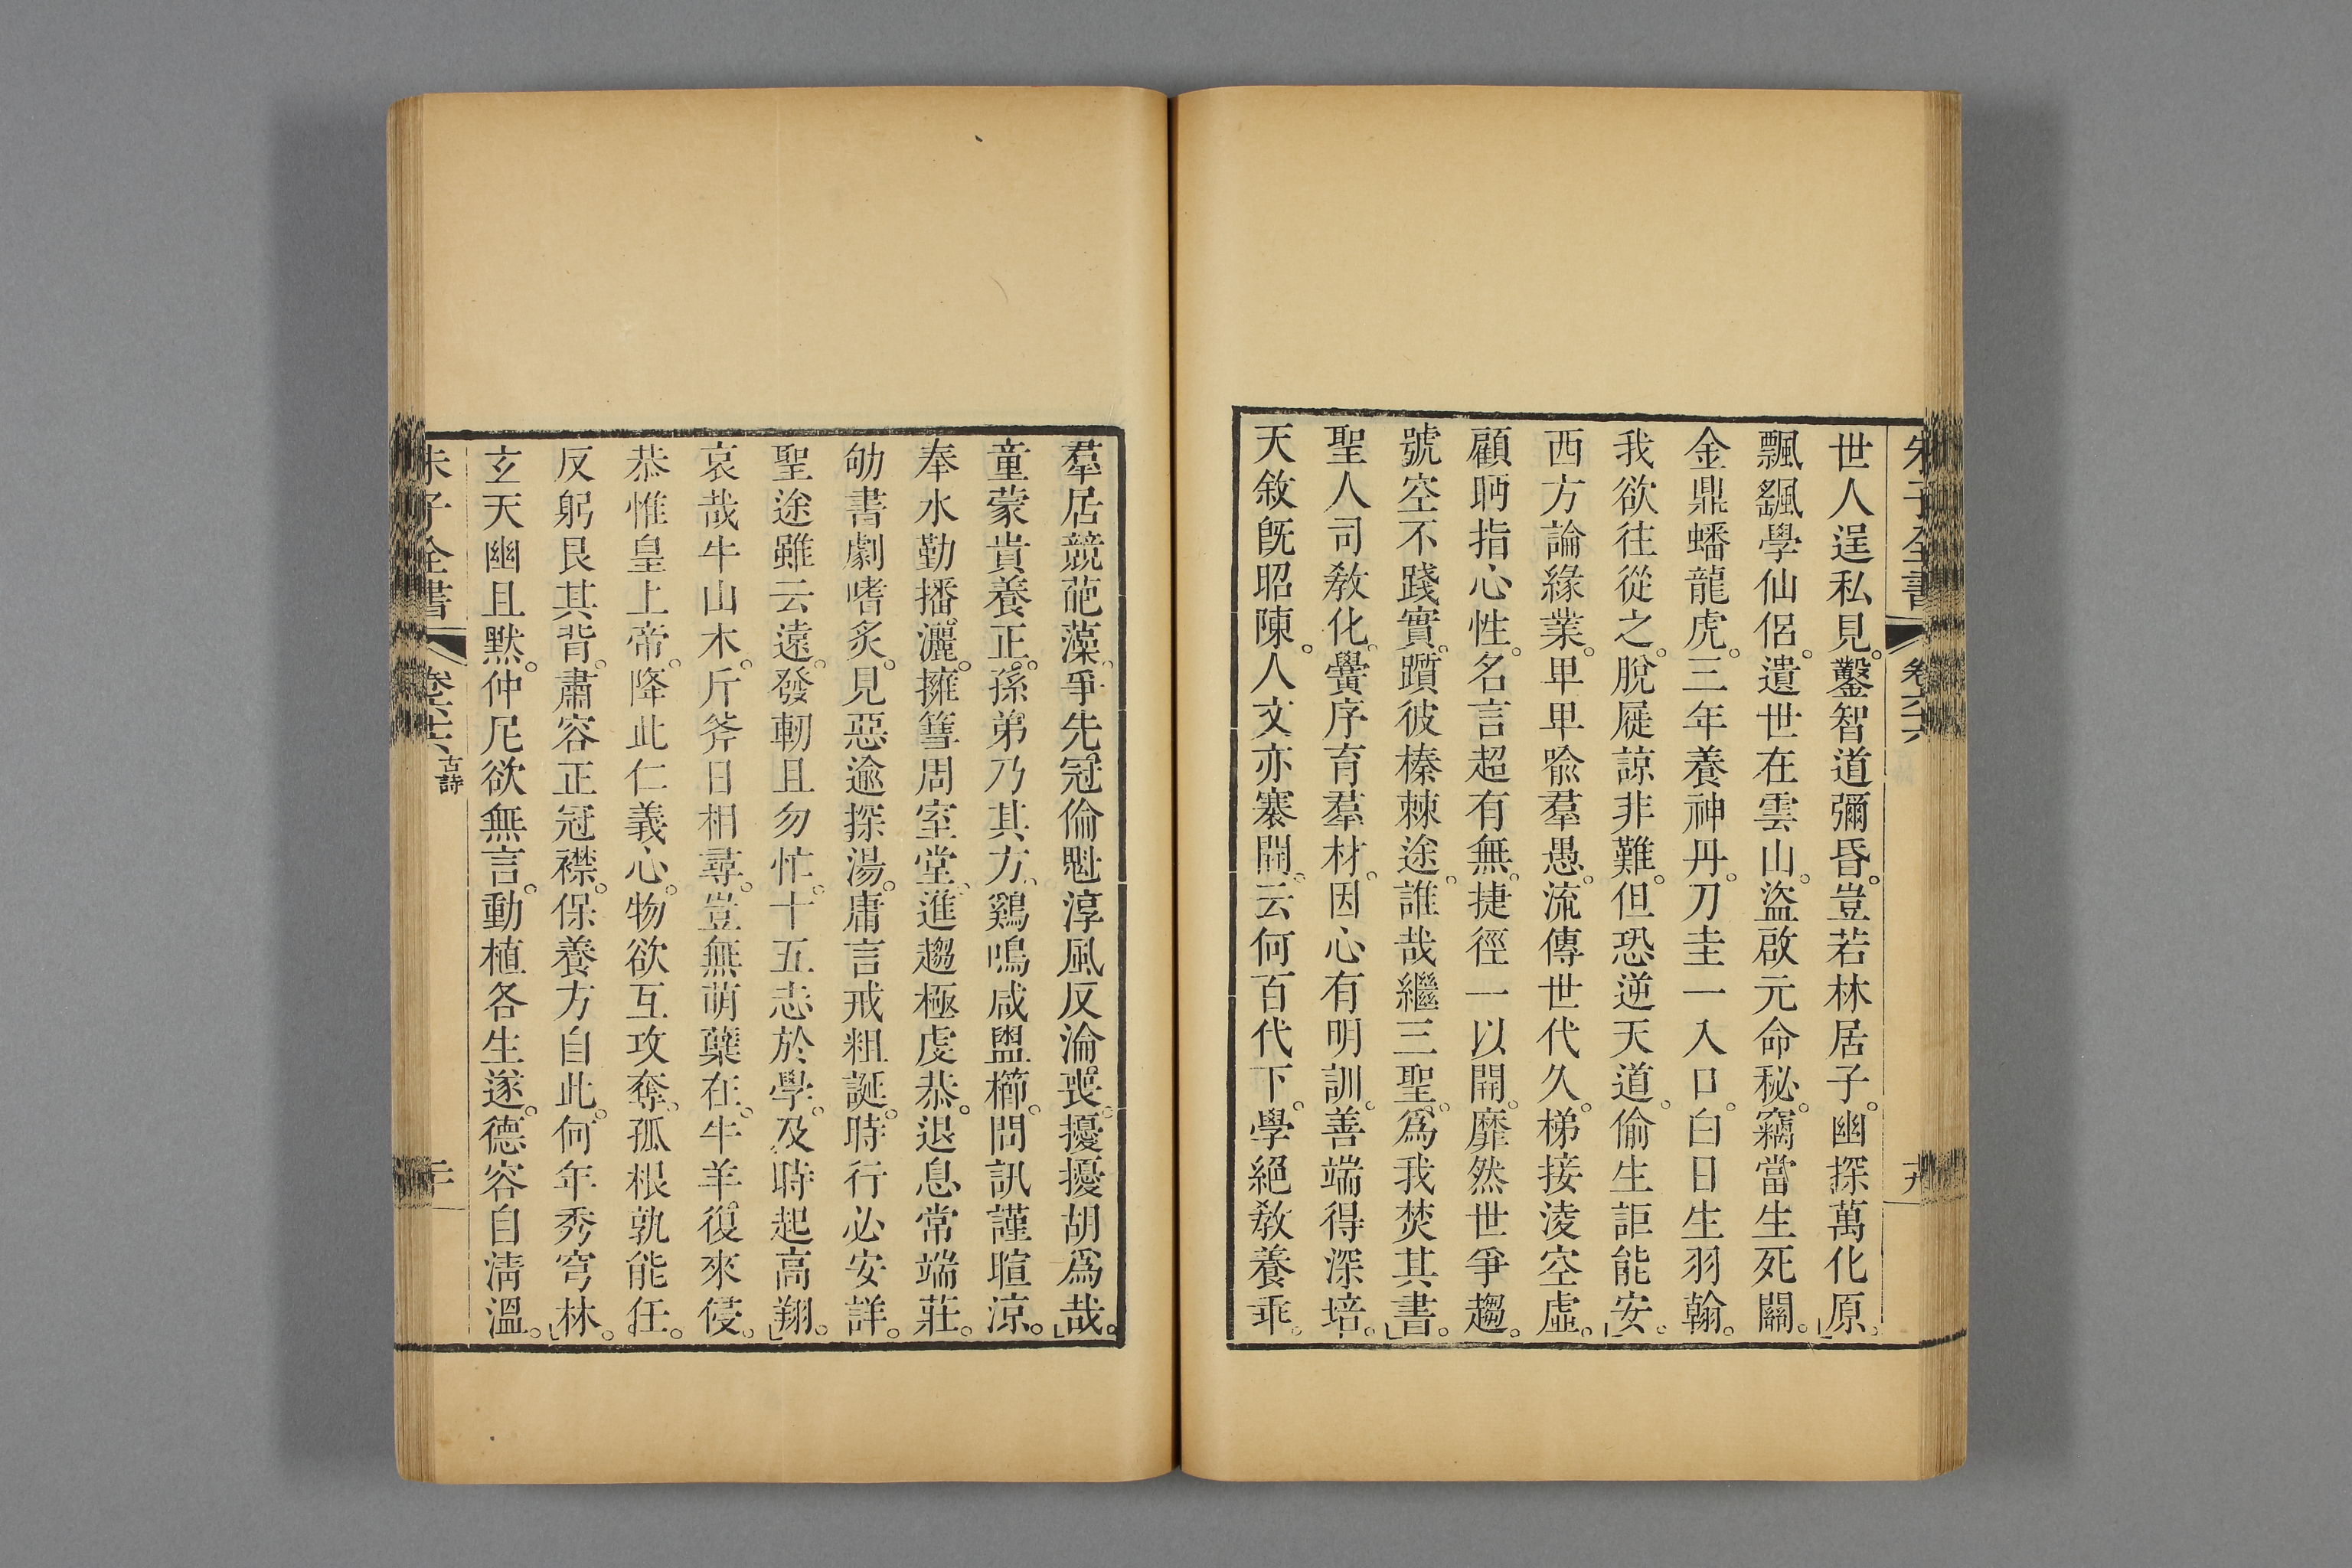 朱子全書 卷六十六 十九
世人逞私見。鑿智道彌昏。豈若林居子。幽探萬化原。
飄飖學仙侶。遺世在雲山。盜啟元命秘。竊當生死關。
金鼎蟠龍虎。三年養神丹。刀圭一入口。白日生羽翰。
我欲往從之。脫屣諒非難。但恐逆天道。偷生詎能安。
西方論緣業。卑卑喻羣愚。流傳世代久。梯接淩空虛。
顧眄指心性。名言超有無。捷徑一以開。靡然世爭趨。
號空不踐實。躓彼榛棘途。誰哉繼三聖。爲我焚其書。
聖人司敎化。黌序育羣材。因心有明訓。善端得深培。
天敘旣昭陳。人文亦褰開。云何百代下。學絕敎養乖。
羣居競葩藻。爭先冠倫魁。淳風反淪喪。擾擾胡爲哉。
童蒙貴養正。孫弟乃其方。鷄鳴咸盥櫛。問訊謹暄涼。
奉水勤播灑。擁篲周室堂。進趨極虔恭。退息常端莊。
劬書劇嗜炙。見惡逾探湯。庸言戒粗誕。時行必安詳。
聖途雖云遠。發軔且勿忙。十五志於學。及時起高翔。
哀哉牛山木。斤斧日相尋。豈無萌蘖在。牛羊復來侵。
恭惟皇上帝。降此仁義心。物欲互攻奪。孤根孰能任。
反躬艮其背。肅容正冠襟。保養方自此。何年秀穹林。
玄天幽且默。仲尼欲無言。動植各生遂。德容自淸溫。
朱子全書 卷六十六 古詩 二十